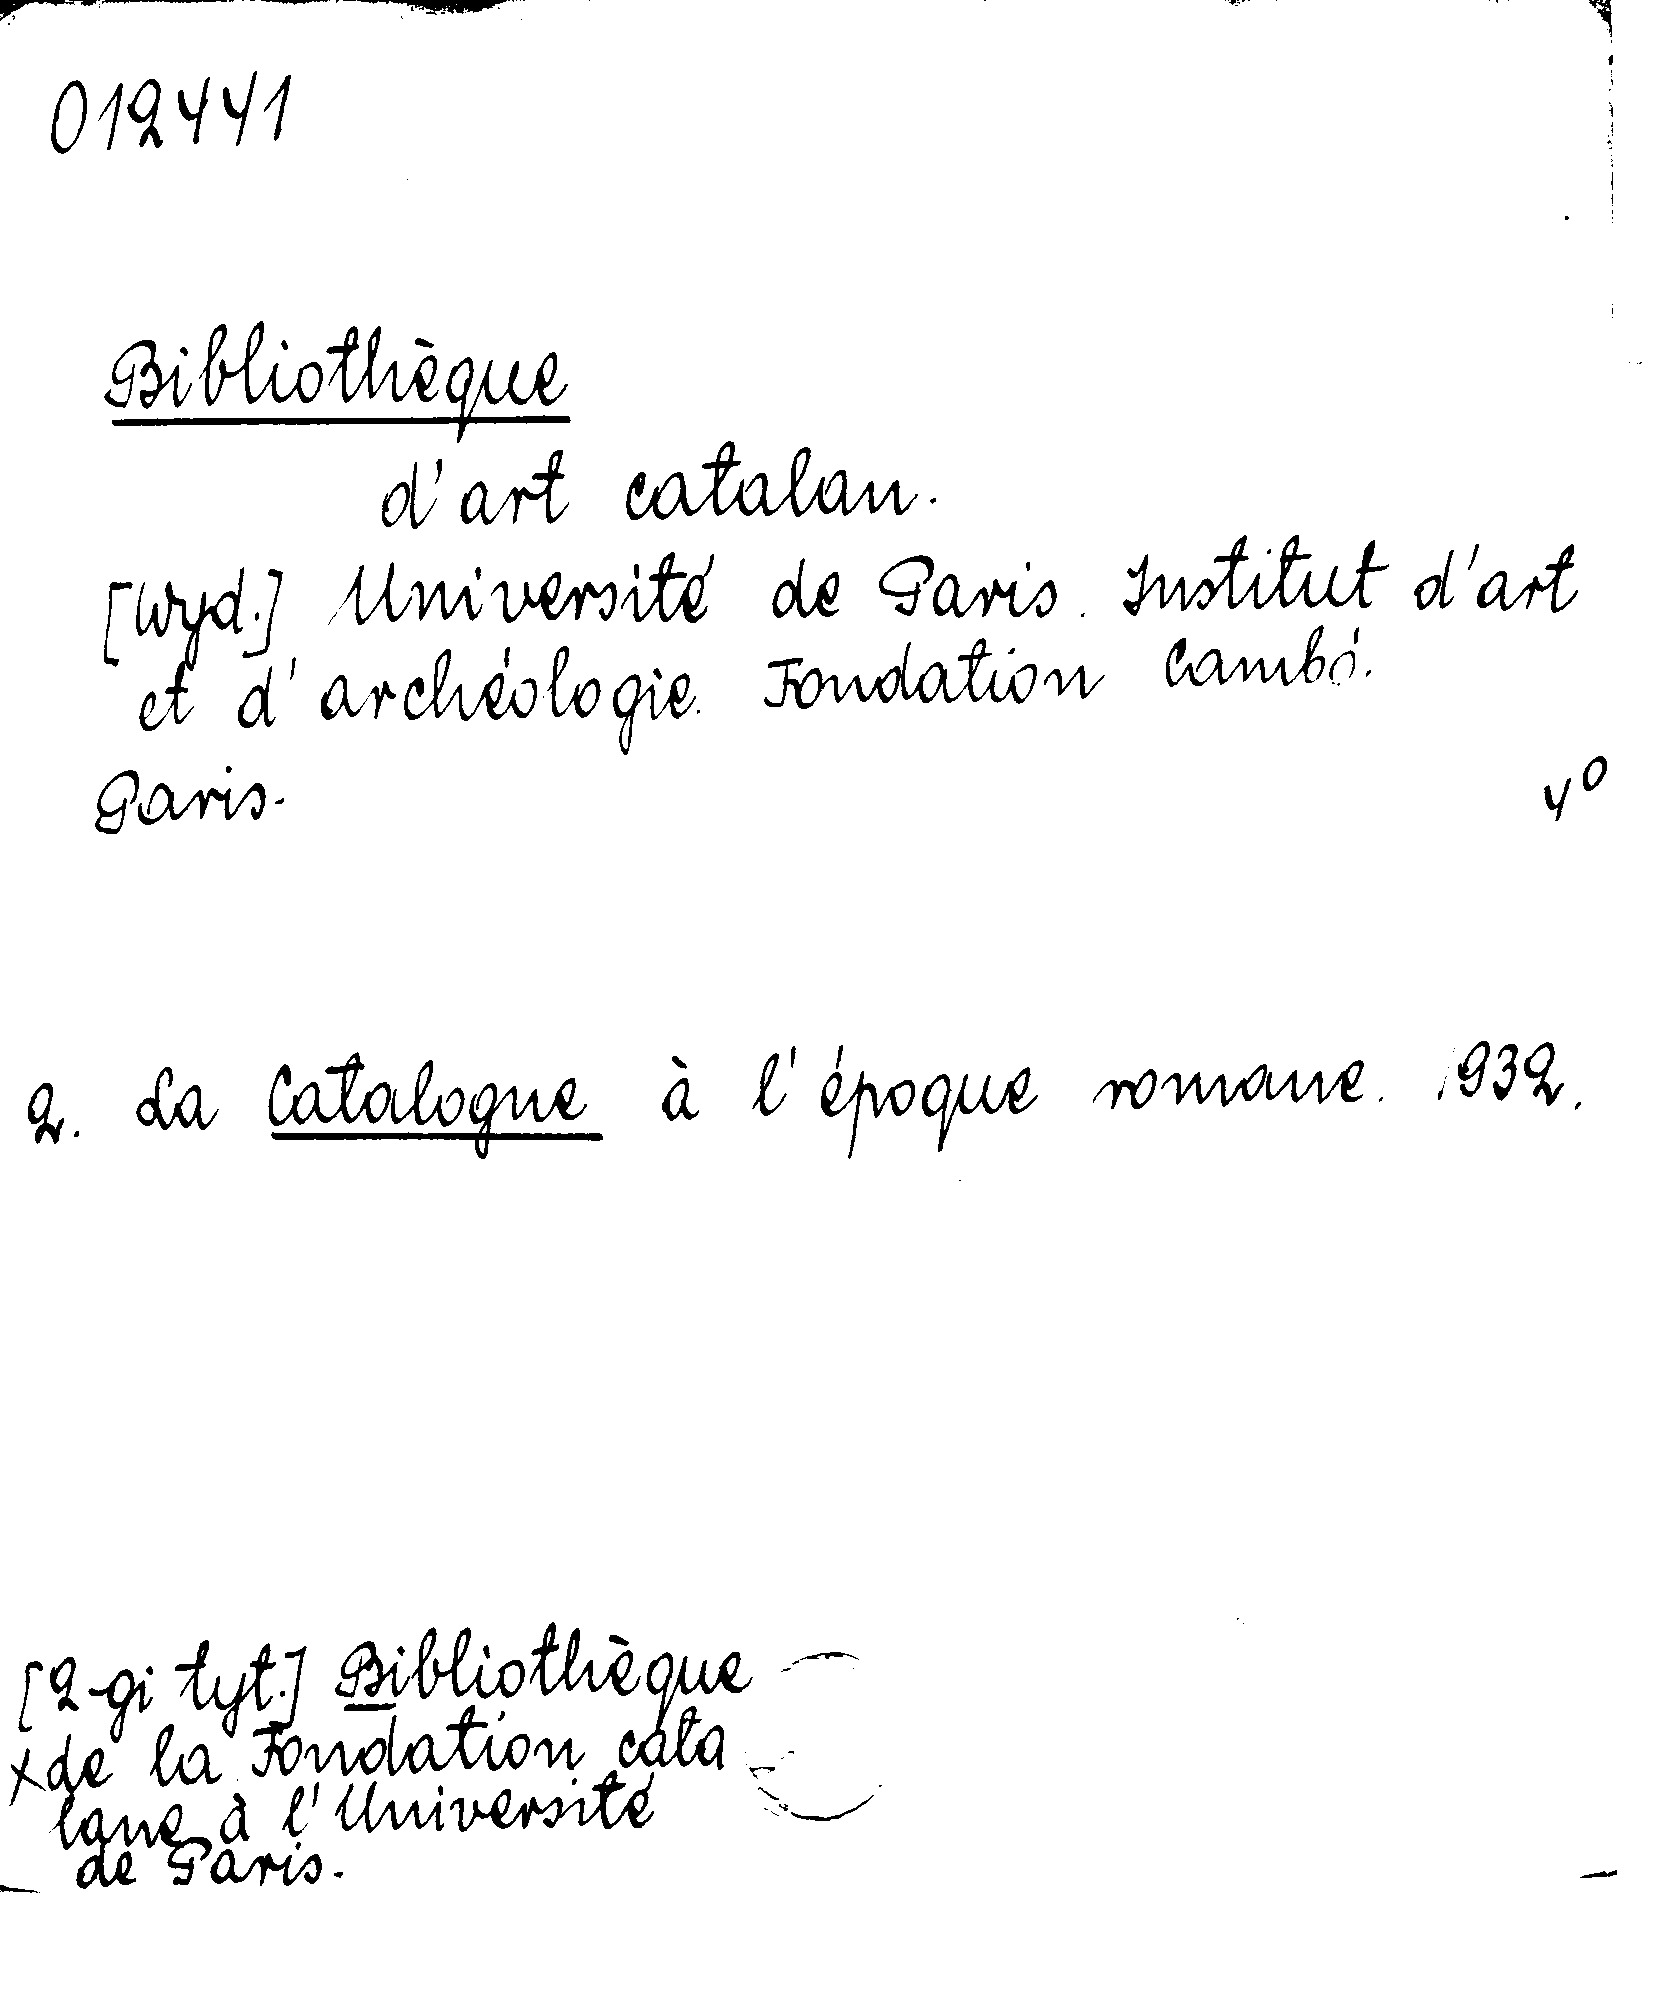 012441
Bibliothèque
d'art catalan.
[Wyd.] Université de Paris. Institut d'art
et d'archéologie. Fondation Cambó.
Paris.
4°
2. La Catalogne à l'époque romane. 1932.
[2-gi tyt.] Bibliothèque
x de la Fondation cata
lane à l'Université
de Paris.